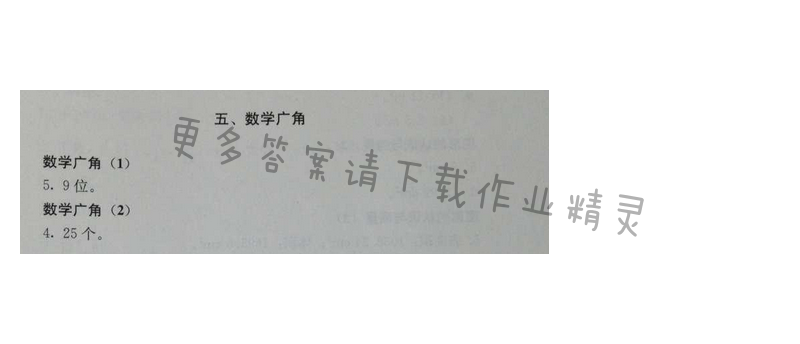 五、数学广角
数学广角（1）
5. 9位。
数学广角（2）
4. 25个。
更多答案请下载作业精灵